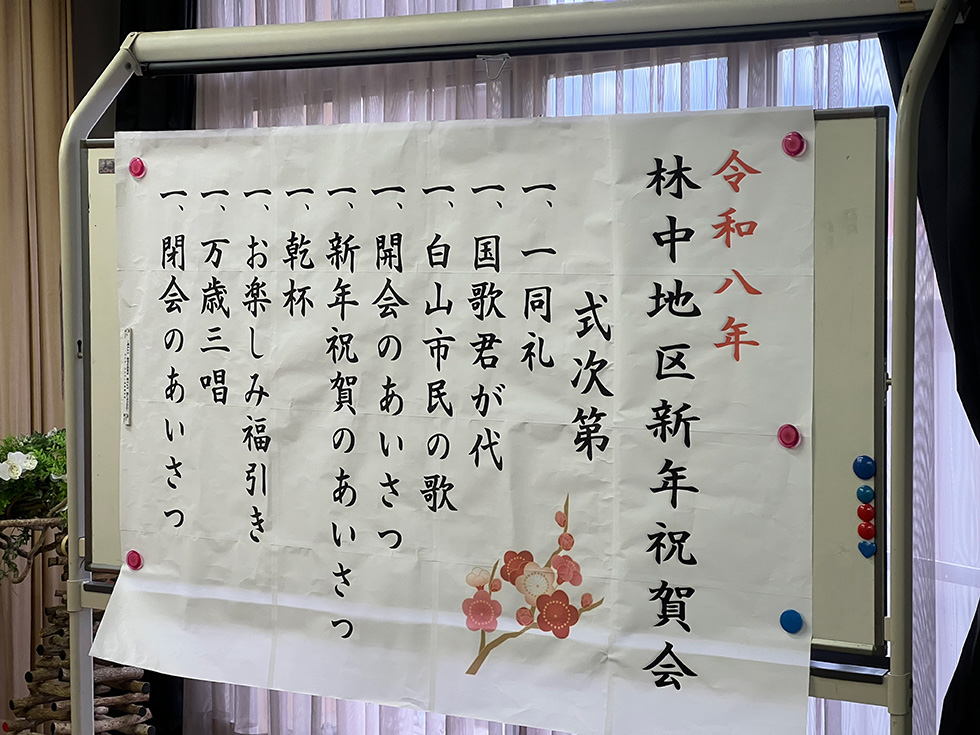 令和八年
林中地区新年祝賀会
式次第
一、一同礼
一、国歌君が代
一、白山市民の歌
一、開会のあいさつ
一、新年祝賀のあいさつ
一、乾杯
一、お楽しみ福引き
一、万歳三唱
一、閉会のあいさつ